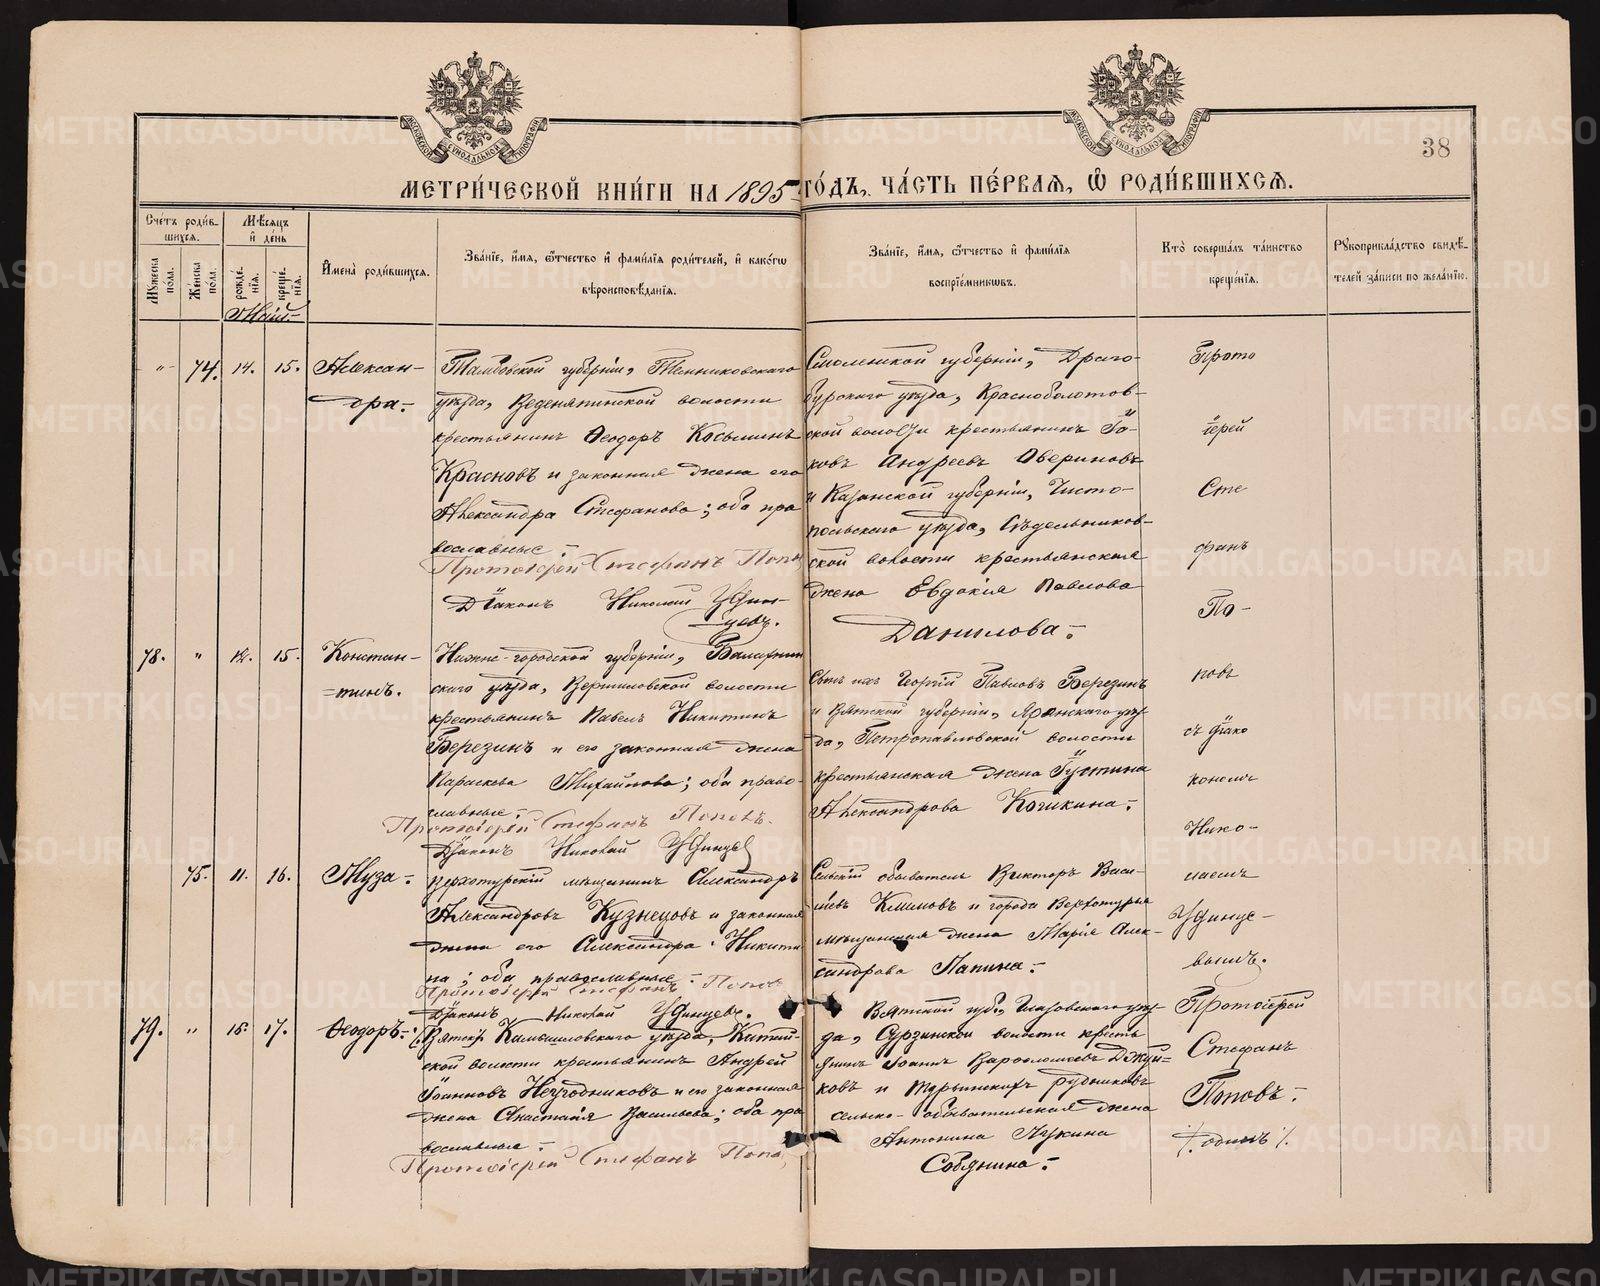 38
МЕТРИ́ЧЕСКОЙ КНИ́ГИ НА 1895 ГО́ДЪ, ЧА́СТЬ ПЕ́РВАЯ, Ѡ҆ РОДИ́ВШИХСЯ.
Сче́тъ роди́в-
шихся.
Мѣ́сяцъ
и҆ де́нь
Мꙋ́жеска по́ла.
Же́нска по́ла.
рожде́нїя.
креще́нїя.
И҆мена̀ роди́вшихся.
Зва́нїе, и҆́мя, ѻ҆́тчество и҆ фами́лїя роди́телей, и҆ како́гѡ
вѣроисповѣ́данїя.
Зва́нїе, и҆́мя, ѻ҆́тчество и҆ фами́лїя
воспрїе́мникѡвъ.
Кто̀ соверша́лъ та́инство
креще́нїя.
Рꙋкоприкла́дство свидѣ́-
телей за́писи по жела́нїю.
Май.
" 74. 14. 15. Алексан-
дра.
Тамбовской губерніи, Темниковскаго
уѣзда, Веденяпинской волости
крестьянинъ Ѳеодоръ Косьминъ
Красновъ и законная жена его
Александра Стефанова; оба пра
вославные.
Протоіерей Стефанъ Попо
Діаконъ Николай Удин-
цевъ.
Смоленской губерніи, Дрого-
бужскаго уѣзда, Красноболотов-
ской волости крестьянинъ Іа-
ковъ Андреевъ Овериновъ
и Казанской губерніи, Чисто-
польскаго уѣзда, Сѣдельников-
ской волости крестьянская
жена Евдокія Павлова
Данилова.
Прото
іерей
Сте
фанъ
По-
повъ
съ діако
кономъ
Нико-
лаемъ
Удинце-
вымъ.
78. " 12. 15. Констан-
тинъ.
Нижне-городской губерніи, Балахнин
скаго уѣзда, Вершиловской волости
крестьянинъ Павелъ Никитинъ
Березинъ и его законная жена
Параскева Михайлова; оба право-
славные.
Протоіерей Стефанъ Поповъ.
Діаконъ Николай Удинцев
Сынъ ихъ Георгій Павловъ Березинъ
и Вятской губерніи, Яранскаго уѣз
да, Петропавловской волости
крестьянская жена Іустина
Александрова Когикина.
75. 11. 16. Муза.
Верхотурскій мѣщанинъ Александръ
Александровъ Кузнецовъ и законная
жена его Александра Никити
на; оба православные.
Протоіерей Стефанъ Попов
Діаконъ Николай Удинцев.
Сельскій обыватель Викторъ Васи-
льевъ Климовъ и города Верхотурья
мѣщанская жена Марія Алек-
сандрова Папина.
79. " 15. 17. Ѳеодоръ.
Вятск. Камышловскаго уѣзда,
ской волости крестьянинъ Андрей
Іоанновъ Неугодниковъ и его законная
жена Анастасія Васильева; оба пра
вославные.
Протоіерей Стефанъ Попо
Вятской губ., Глазовскаго уѣз
да, Сурзинской волости кресть
янинъ Іоаннъ Варѳоломеевъ Джуй-
ковъ и Турьинскихъ рудниковъ
сельско-обывательская жена
Антонина Лукина
Собянина.
Протоіерей
Стефанъ
Поповъ.
одинъ